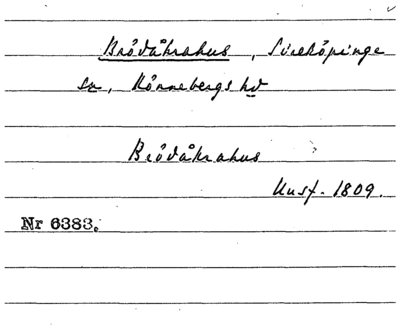 Brödåkrahus, Sireköpinge
sn, Rönnebergs hd
Brödåkrahus
Husf. 1809.
Nr 6383.